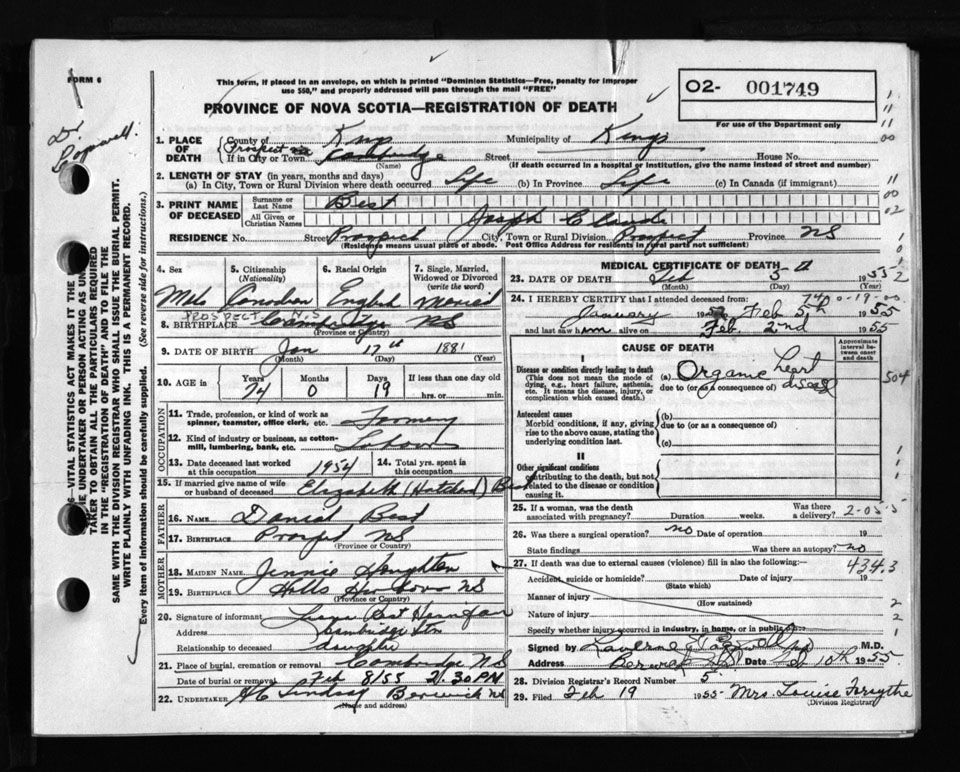 FORM 6
This form, if placed in an envelope, on which is printed "Dominion Statistics—Free, penalty for improper
use $50," and properly addressed will pass through the mail "FREE"
PROVINCE OF NOVA SCOTIA—REGISTRATION OF DEATH
O2- 001749
For use of the Department only
Dr. Cogswell
1. PLACE OF DEATH County of Kings Municipality of Kings
Prospect
If in City or Town Cambridge Street House No.
(Name) (If death occurred in a hospital or institution, give the name instead of street and number)
2. LENGTH OF STAY (in years, months and days)
(a) In City, Town or Rural Division where death occurred Life (b) In Province Life (c) In Canada (if immigrant)
3. PRINT NAME OF DECEASED Surname or Last Name Best
All Given or Christian Names Joseph Claude
RESIDENCE No. Street Prospect City, Town or Rural Division Prospect Province NS
(Residence means usual place of abode. Post Office Address for residents in rural parts not sufficient)
4. Sex Male
5. Citizenship (Nationality) Canadian
6. Racial Origin English
7. Single, Married, Widowed or Divorced (write the word) Married
PROSPECT N.S
8. BIRTHPLACE Cambridge NS
(Province or Country)
9. DATE OF BIRTH Jan 17th 1881
(Month) (Day) (Year)
10. AGE in Years 74 Months 0 Days 19 If less than one day old
hrs. or min.
OCCUPATION
11. Trade, profession, or kind of work as
spinner, teamster, office clerk, etc.
12. Kind of industry or business, as cotton-
mill, lumbering, bank, etc. Labour
13. Date deceased last worked
at this occupation 1954
14. Total yrs. spent in
this occupation
15. If married give name of wife
or husband of deceased Elizabeth Best
FATHER
16. NAME Daniel Best
17. BIRTHPLACE Prospect NS
(Province or Country)
MOTHER
18. MAIDEN NAME Jennie Houghton
19. BIRTHPLACE Halls Harbour NS
(Province or Country)
20. Signature of informant
Address Cambridge Stn
Relationship to deceased daughter
21. Place of burial, cremation or removal Cambridge NS
Date of burial or removal Feb 8/55 2.30 PM
22. UNDERTAKER Lindsay Berwick NS
(Name and address)
MEDICAL CERTIFICATE OF DEATH
23. DATE OF DEATH Feb 5th 1955
(Month) (Day)
24. I HEREBY CERTIFY that I attended deceased from:
January Feb 5th 1955
and last saw him alive on Feb. 2nd 1955
CAUSE OF DEATH
Approximate interval between onset and death
I
Disease or condition directly leading to death
(This does not mean the mode of dying, e.g., heart failure, asthenia, etc. It means the disease, injury, or complication which caused death.)
(a) Organic heart disease
due to (or as a consequence of)
Antecedent causes
Morbid conditions, if any, giving rise to the above cause, stating the underlying condition last.
(b)
due to (or as a consequence of)
(c)
II
Other significant conditions
contributing to the death, but not related to the disease or condition causing it.
504
25. If a woman, was the death
associated with pregnancy? Duration weeks. Was there a delivery?
26. Was there a surgical operation? no Date of operation 19
State findings Was there an autopsy? no
27. If death was due to external causes (violence) fill in also the following:—
4343
Accident, suicide or homicide? Date of injury 19
(State which)
Manner of injury
(How sustained)
Nature of injury
Specify whether injury occurred in industry, in home, or in public
Signed by M.D.
Address Berwick NS Date Feb 10th 1955
28. Division Registrar's Record Number 5
29. Filed Feb 19 1955 Mrs. Louise Forsythe
(Division Registrar)
VITAL STATISTICS ACT MAKES IT THE
UNDERTAKER OR PERSON ACTING AS
TAKER TO OBTAIN ALL THE PARTICULARS REQUIRED
IN THE "REGISTRATION OF DEATH" AND TO FILE THE
SAME WITH THE DIVISION REGISTRAR WHO SHALL ISSUE THE BURIAL PERMIT.
WRITE PLAINLY WITH UNFADING INK. THIS IS A PERMANENT RECORD.
Every item of information should be carefully supplied. (See reverse side for instructions.)